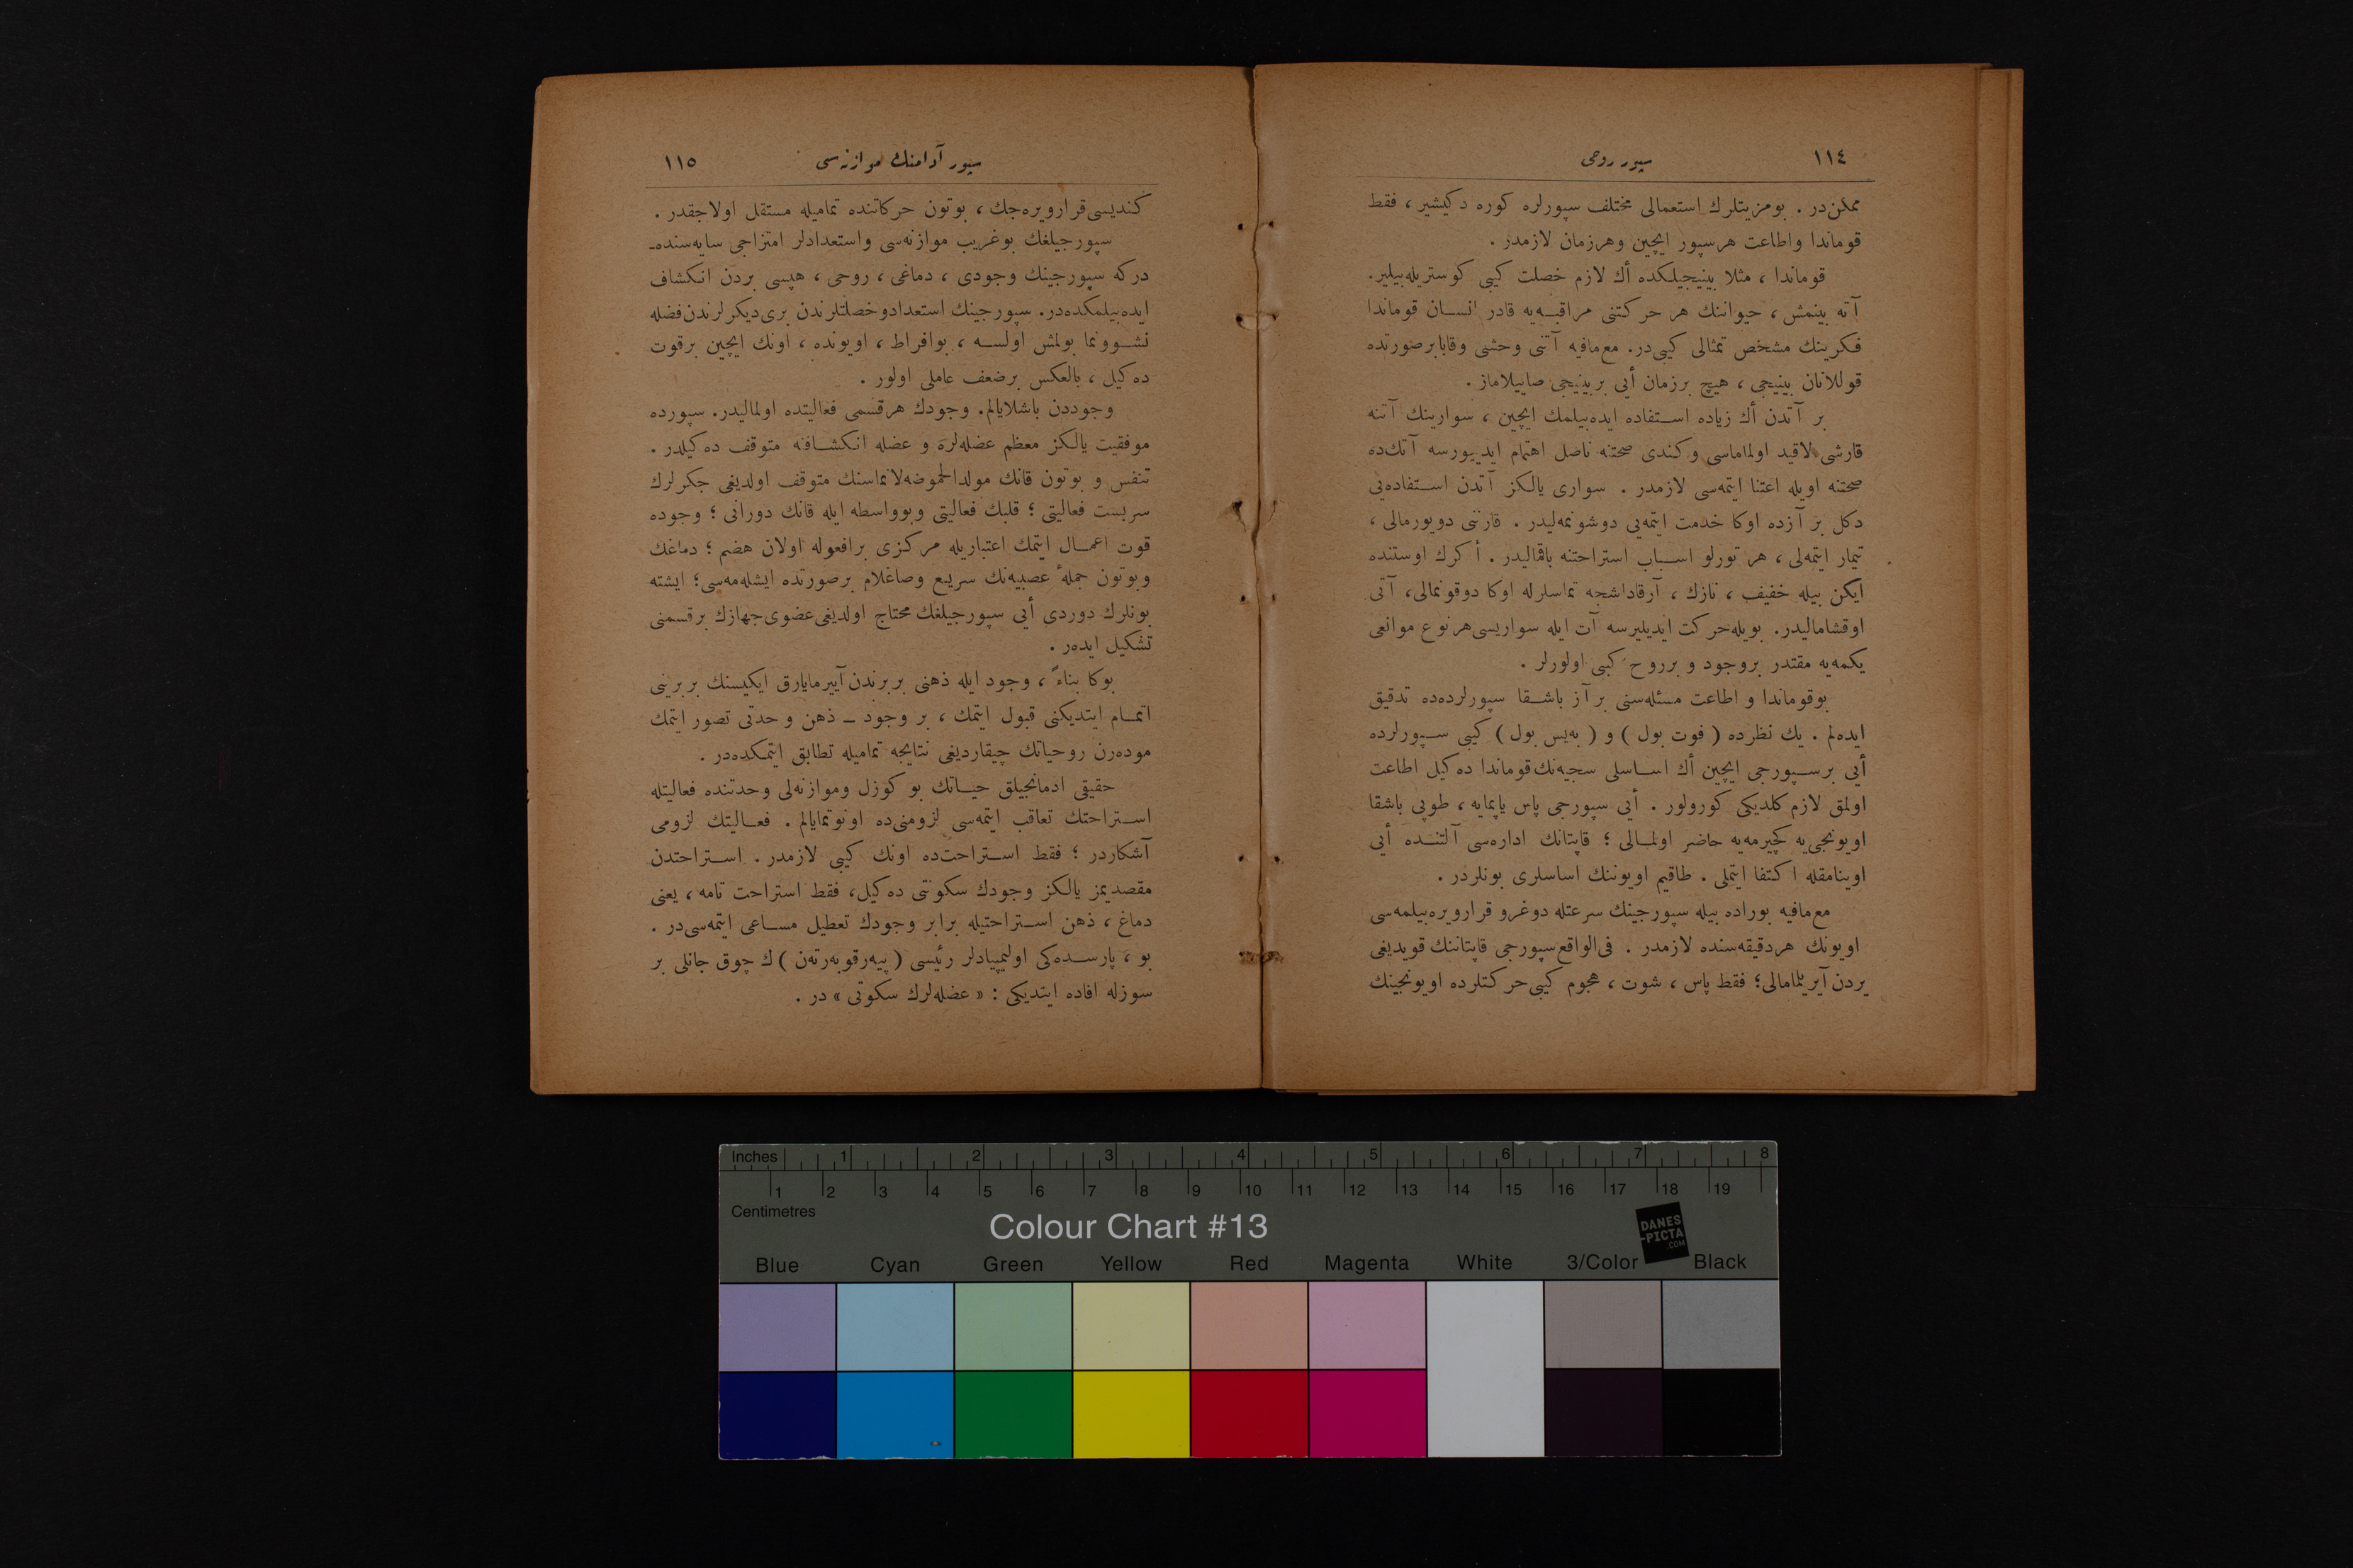 ١١٤
سپور روحی
ممكن‌در . بومزیتلرك استعمالی مختلف سپورلره كوره دكیشیر ، فقط
قوماندا واطاعت هرسپور ایچین وهرزمان لازمدر .
قوماندا ، مثلا بینیجیلكده أك لازم خصلت كیبی كوستریله‌بیلیر.
آته بینمش ، حیواننك هر حركتنی مراقبه‌یه قادر انسان قوماندا
فكرینك مشخص تمثالی كیبی‌در. مع‌مافیه آتنی وحشی وقابابرصورتده
قوللانان بینیجی ، هیچ برزمان أیی بربینیجی صاییلاماز .
بر آتدن أك زیاده استفاده ایده‌بیلمك ایچین ، سوارینك آتنه
قارشی لاقید اولماماسی وكندی صحتنه ناصل اهتمام ایدییورسه آتك‌ده
صحتنه اویله اعتنا ایتمه‌سی لازمدر . سواری یالكز آتدن استفاده‌یی
دكل بر آزده اوكا خدمت ایتمه‌یی دوشونمه‌لیدر . قارننی دویورمالی ،
تیمار ایتمه‌لی ، هر تورلو اسباب استراحتنه باقمالیدر . أكرك اوستنده
ایكن بیله خفیف ، نازك ، آرقاداشجه تماسلرله اوكا دوقونمالی، آتی
اوقشامالیدر. بویله‌حركت ایدیلیرسه آت ایله سواریسی‌هرنوع موانعی
یكمه‌یه مقتدر بروجود و برروح كبی اولورلر .
بوقوماندا و اطاعت مسئله‌سنی بر آز باشقا سپورلرده‌ده تدقیق
ایده‌لم . یك نظرده ( فوت بول ) و ( به‌یس بول ) كیبی سپورلرده
أیی برسپورجی ایچین أك اساسلی سجیه‌نك‌قوماندا ده‌كیل اطاعت
اولمق لازم‌كلدیكی كورولور . أیی سپورجی پاس یاپمایه ، طوپی باشقا
اویونجی‌یه كچیرمه‌یه حاضر اولمالی ؛ قاپتانك اداره‌سی آلتنده أیی
اوینامقله اكتفا ایتملی . طاقیم اویوننك اساسلری بونلردر .
مع‌مافیه بوراده بیله سپورجینك سرعتله دوغرو قرارویره‌بیلمه‌سی
اویونك هردقیقه‌سنده لازمدر . فی‌الواقع‌سپورجی قاپتاننك قویدیغی
یردن آیریلمامالی؛ فقط پاس ، شوت ، هجوم كیبی‌حركتلرده اویونجینك
سپور آدامنك موازنه‌سی
١١٥
كندیسی‌قرارویره‌جك ، بوتون حركاتنده تمامیله مستقل اولاجقدر .
سپورجیلغك بوغریب موازنه‌سی واستعدادلر امتزاجی سایه‌سنده‌ـ
دركه سپورجینك وجودی ، دماغی ، روحی ، هپسی بردن انكشاف
ایده‌بیلمكده‌در. سپورجینك استعدادوخصلتلرندن بری‌دیكرلرندن‌فضله
نشوونما بولمش اولسه ، بوافراط ، اویونده ، اونك ایچین برقوت
ده‌كیل ، بالعكس برضعف عاملی اولور .
وجوددن باشلایالم. وجودك هرقسمی فعالیتده اولمالیدر. سپورده
موفقیت یالكز معظم عضله‌لره و عضله انكشافنه متوقف ده‌كیلدر .
تنفس و بوتون قانك مولدالحموضه‌لانماسنك متوقف اولدیغی جكرلرك
سربست فعالیتی ؛ قلبك فعالیتی وبوواسطه ایله قانك دورانی ؛ وجوده
قوت اعمال ایتمك اعتباریله مركزی برافعوله اولان هضم ؛ دماغك
وبوتون جملهٔ عصبیه‌نك سریع وصاغلام برصورتده ایشله‌مه‌سی؛ ایشته
بونلرك دوردی أیی سپورجیلغك محتاج اولدیغی‌عضوی‌جهازك برقسمنی
تشكیل ایده‌ر .
بوكا بناءً ، وجود ایله ذهنی بربرندن‌آییرمایارق ایكیسنك بربرینی
اتمام ایتدیكنی قبول ایتمك ، بر وجود ـ ذهن وحدتی تصور ایتمك
موده‌رن روحیاتك چیقاردیغی نتایجه تمامیله تطابق ایتمكده‌در .
حقیقی ادمانجیلق حیاتك بو كوزل وموازنه‌لی وحدتنده فعالیتله
استراحتك تعاقب ایتمه‌سی لزومنی‌ده اونوتمایالم . فعالیتك لزومی
آشكاردر ؛ فقط استراحت‌ده اونك كیبی لازمدر . استراحتدن
مقصدیمز یالكز وجودك سكونتی ده‌كیل، فقط استراحت تامه ، یعنی
دماغ ، ذهن استراحتیله برابر وجودك تعطیل مساعی ایتمه‌سی‌در .
بو ، پارسده‌كی اولیمپیادلر رئیسی ( پیه‌رقوبه‌رته‌ن ) ك چوق جانلی بر
سوزله افاده ایتدیكی : « عضله‌لرك سكوتی » در .
Inches 1 2 3 4 5 6 7 8
1 2 3 4 5 6 7 8 9 10 11 12 13 14 15 16 17 18 19
Centimetres
Colour Chart #13
DANES
-PICTA
.COM
Blue Cyan Green Yellow Red Magenta White 3/Color Black